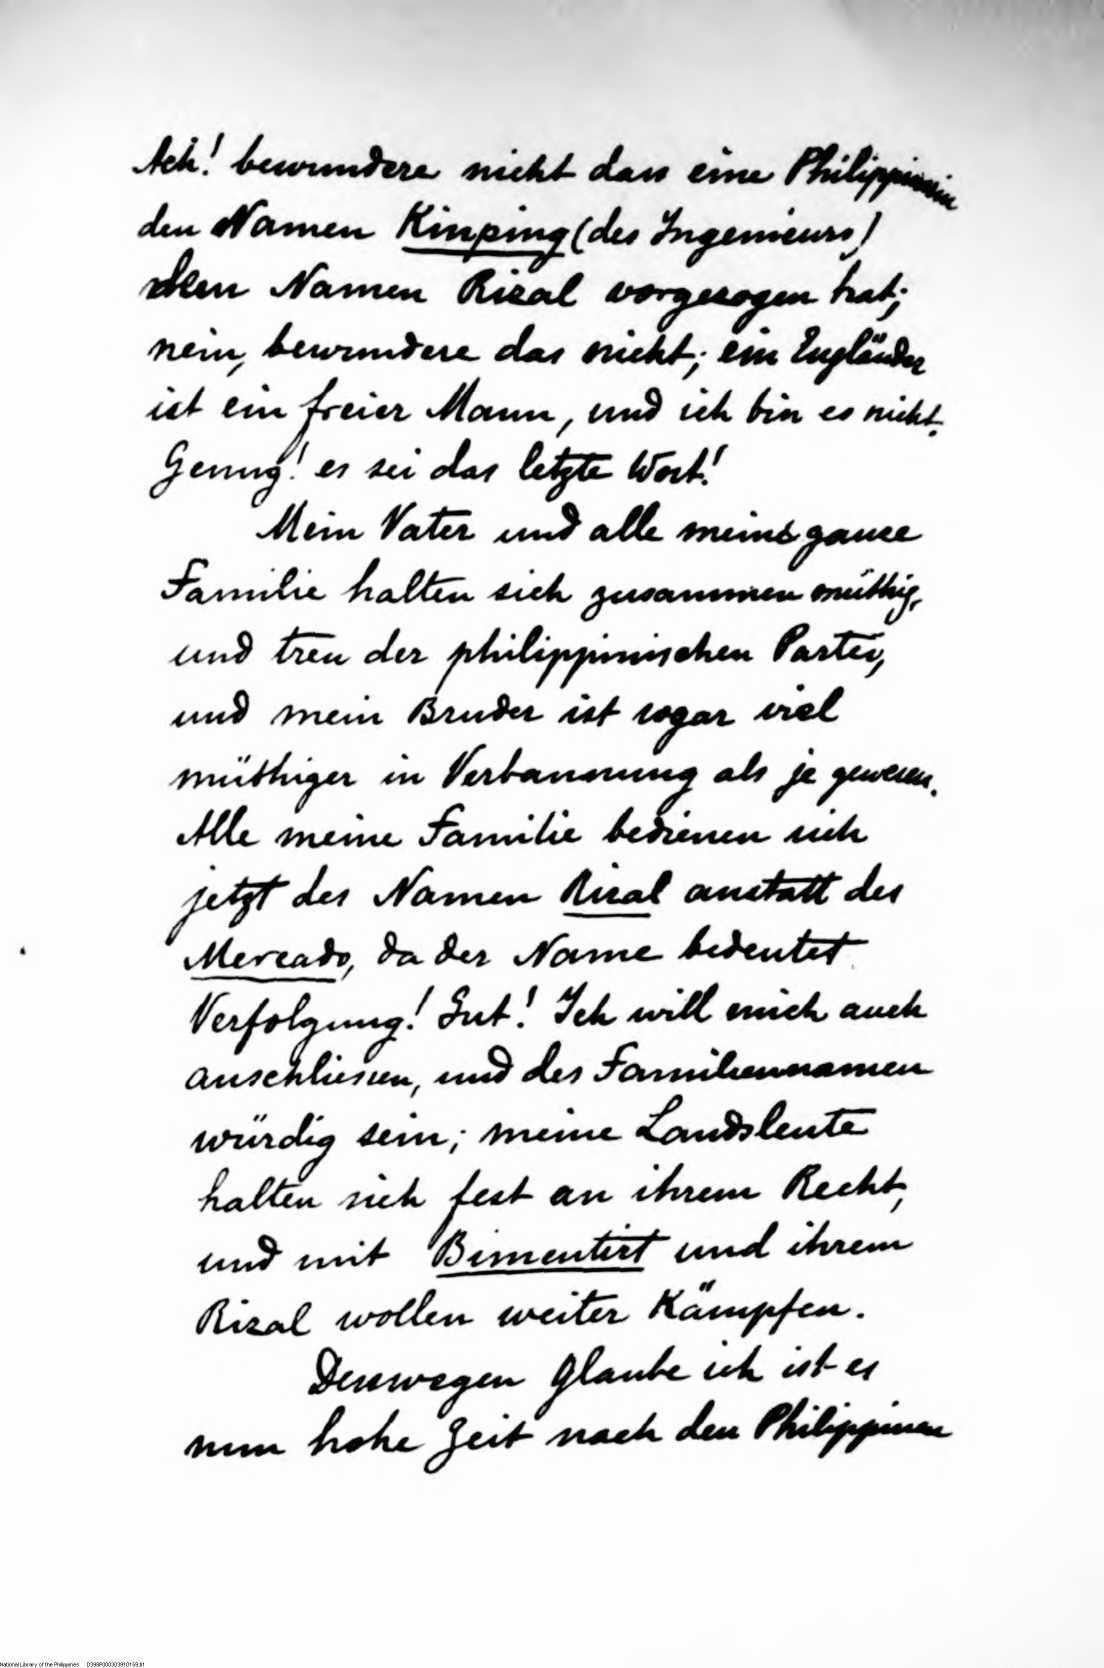 Ach! bewundere nicht dass eine Philippinin
den Namen Kinping (des Ingenieurs)
dem Namen Rizal vorgezogen hat;
nein, bewundere das nicht; ein Engländer
ist ein freier Mann, und ich bin es nicht.
Genug! es sei das letzte Wort!
Mein Vater und alle meine ganze
Familie halten sich zusammen müthig,
und treu der philippinischen Partei,
und mein Bruder ist sogar viel
müthiger in Verbannung als je gewesen.
Alle meine Familie bedienen sich
jetzt des Namen Rizal anstatt des
Mercado, da der Name bedeutet
Verfolgung! Gut! Ich will mich auch
anschliessen, und des Familiennamen
würdig sein; meine Landsleute
halten sich fest an ihrem Recht,
und mit Bimentirt und ihrem
Rizal wollen weiter Kämpfen.
Desswegen glaube ich ist es
nun hohe Zeit nach den Philippinen
National Library of the Philippines